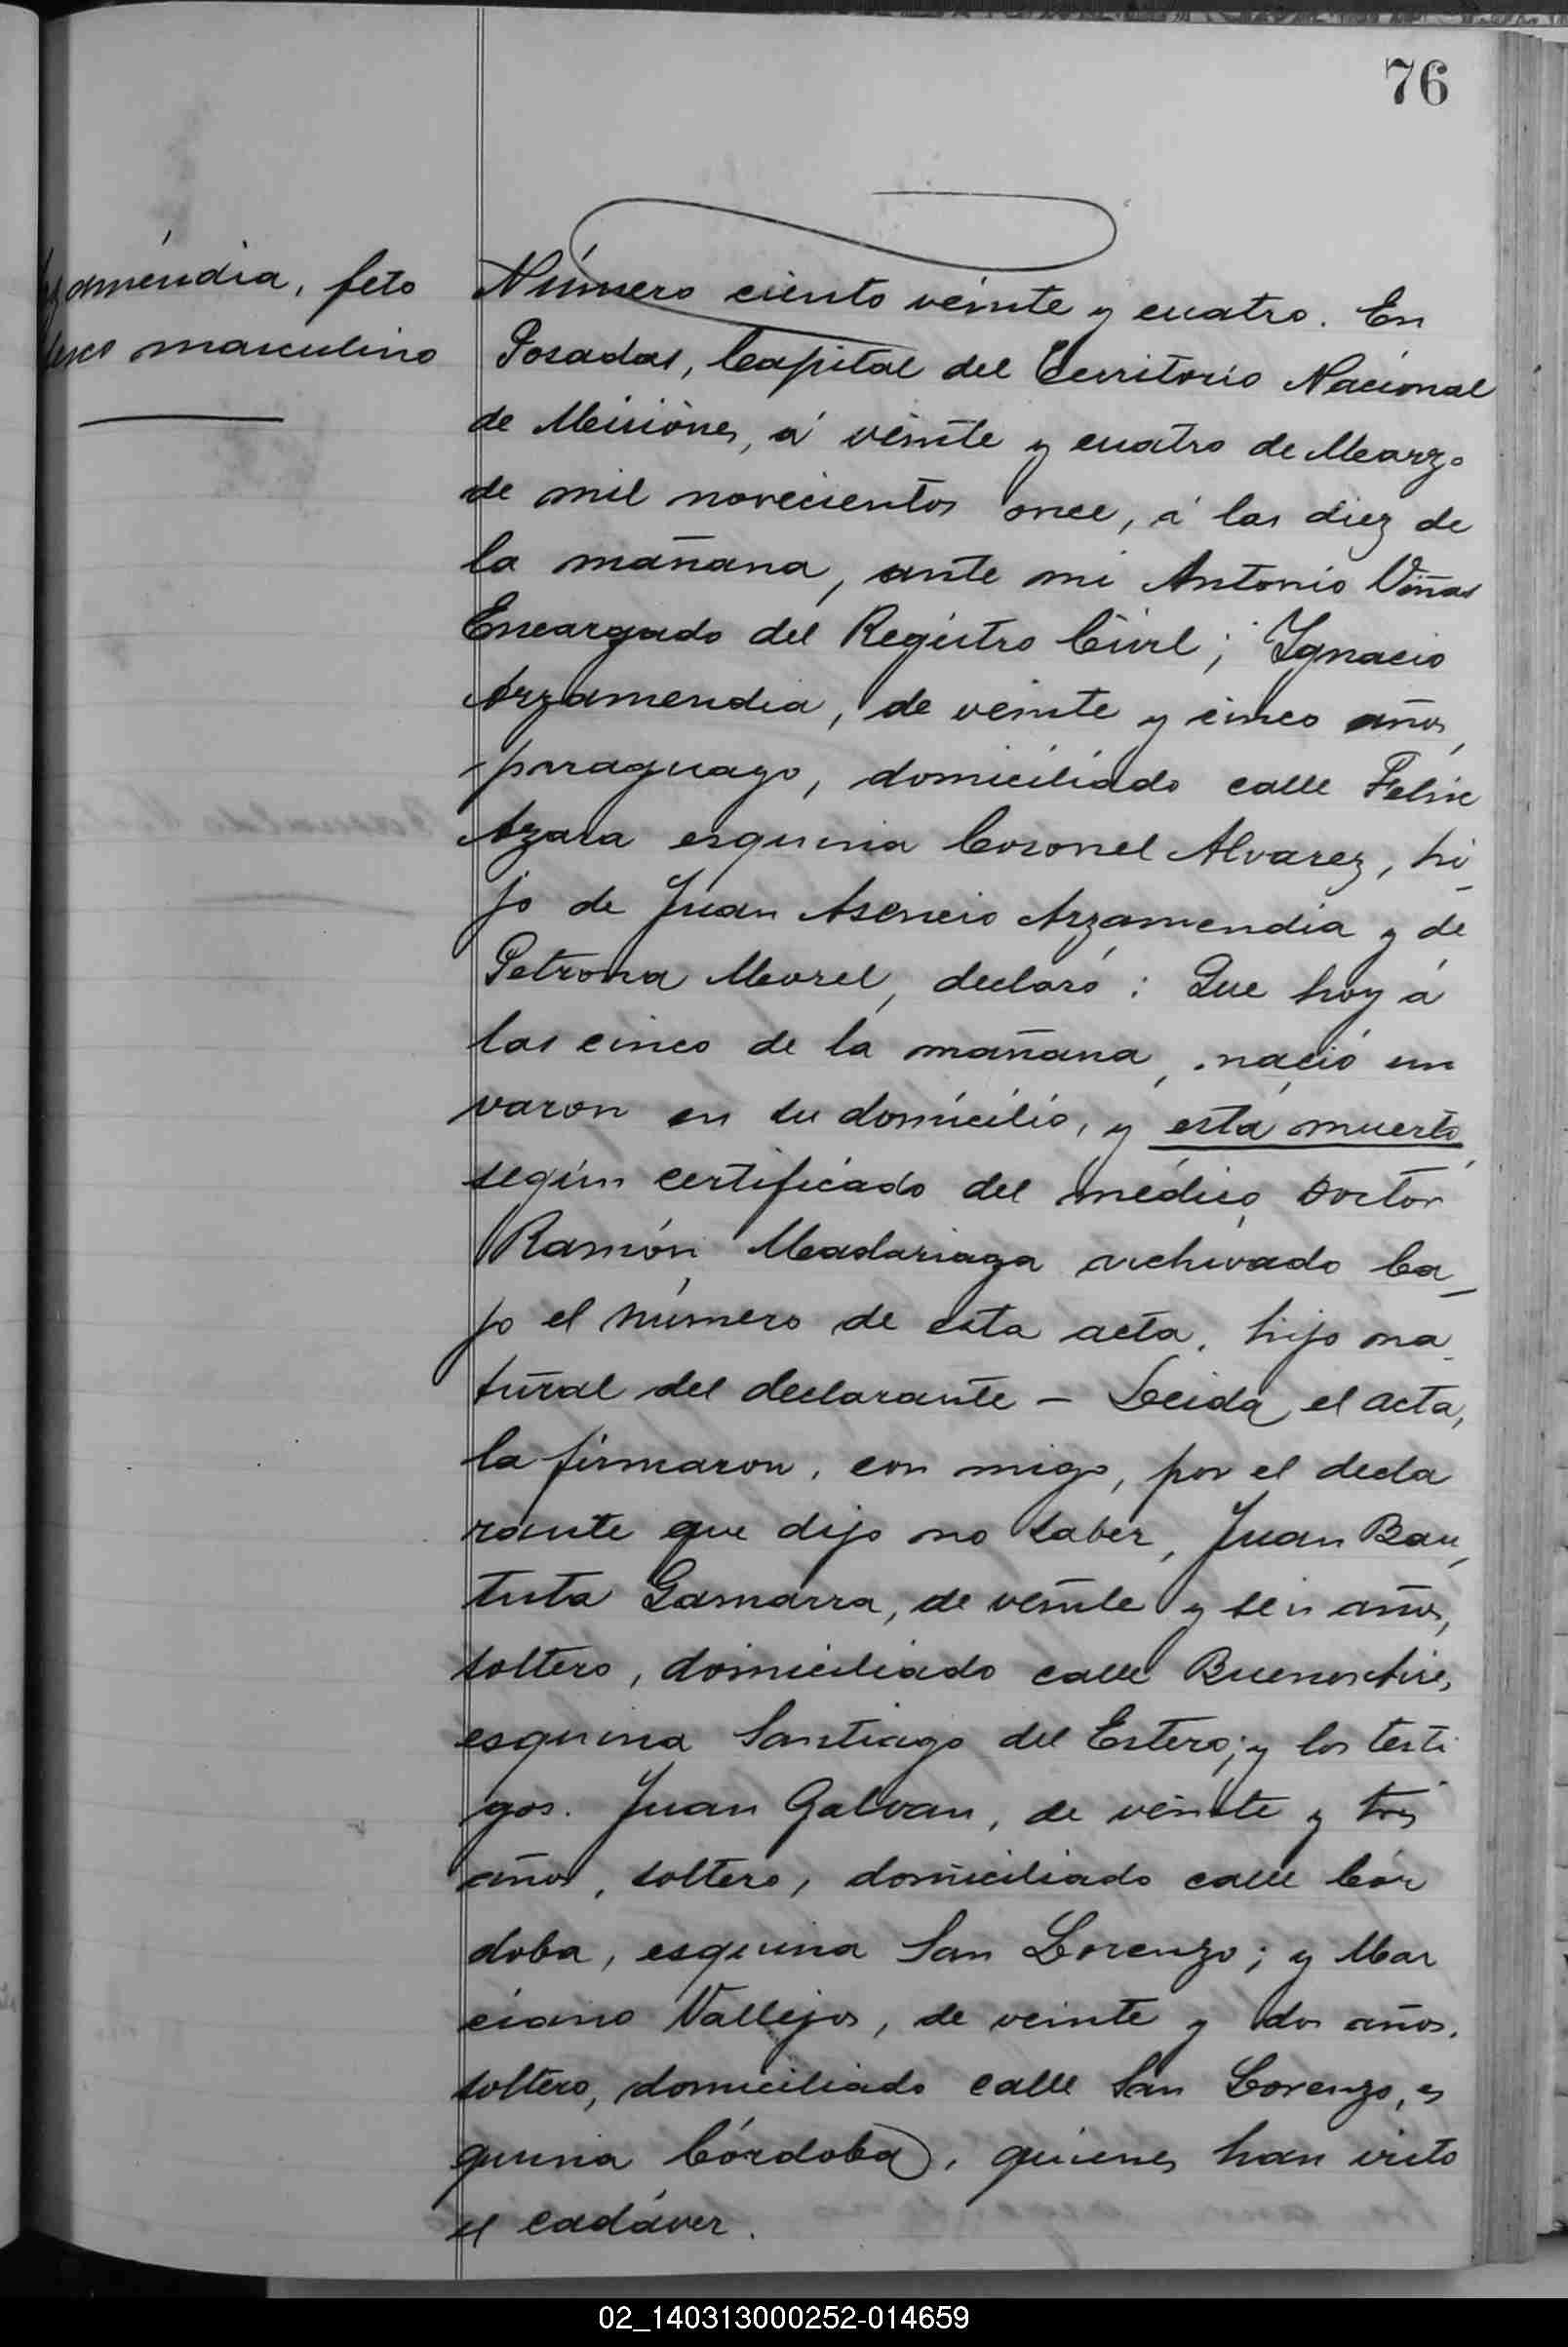 76
amendia, feto
sexo masculino
Número ciento veinte y cuatro. En
Posadas, Capital del Territorio Nacional
de Misiones, á veinte y cuatro de Marzo
de mil novecientos once, á las diez de
la mañana, ante mi Antonio Viñas
Encargado del Registro Civil; Ignacio
Arzamendia, de veinte y cinco años,
paraguayo, domiciliado calle Felix
Azara esquina Coronel Alvarez, hi-
jo de Juan Asencio Arzamendia y de
Petrona Morel, declaró: Que hoy á
las cinco de la mañana, nació un
varon en su domicilio, y está muerto,
según certificado del médico Doctor
Ramón Madariaga archivado ba-
jo el número de esta acta, hijo na-
tural del declarante - Leida el acta,
la firmaron, con migo, por el decla
rante que dijo no saber, Juan Bau,
tista Gamarra, de veinte y seis años,
soltero, domiciliado calle Buenos Aires,
esquina Santiago del Estero; y los testi
gos. Juan Galvan, de veinte y tres
años, soltero, domiciliado calle Cór
doba, esquina San Lorenzo; y Mar
ciano Vallejos, de veinte y dos años.
soltero, domiciliado calle San Lorenzo, es
quina Córdoba, quienes han visto
el cadáver.
02_140313000252-014659